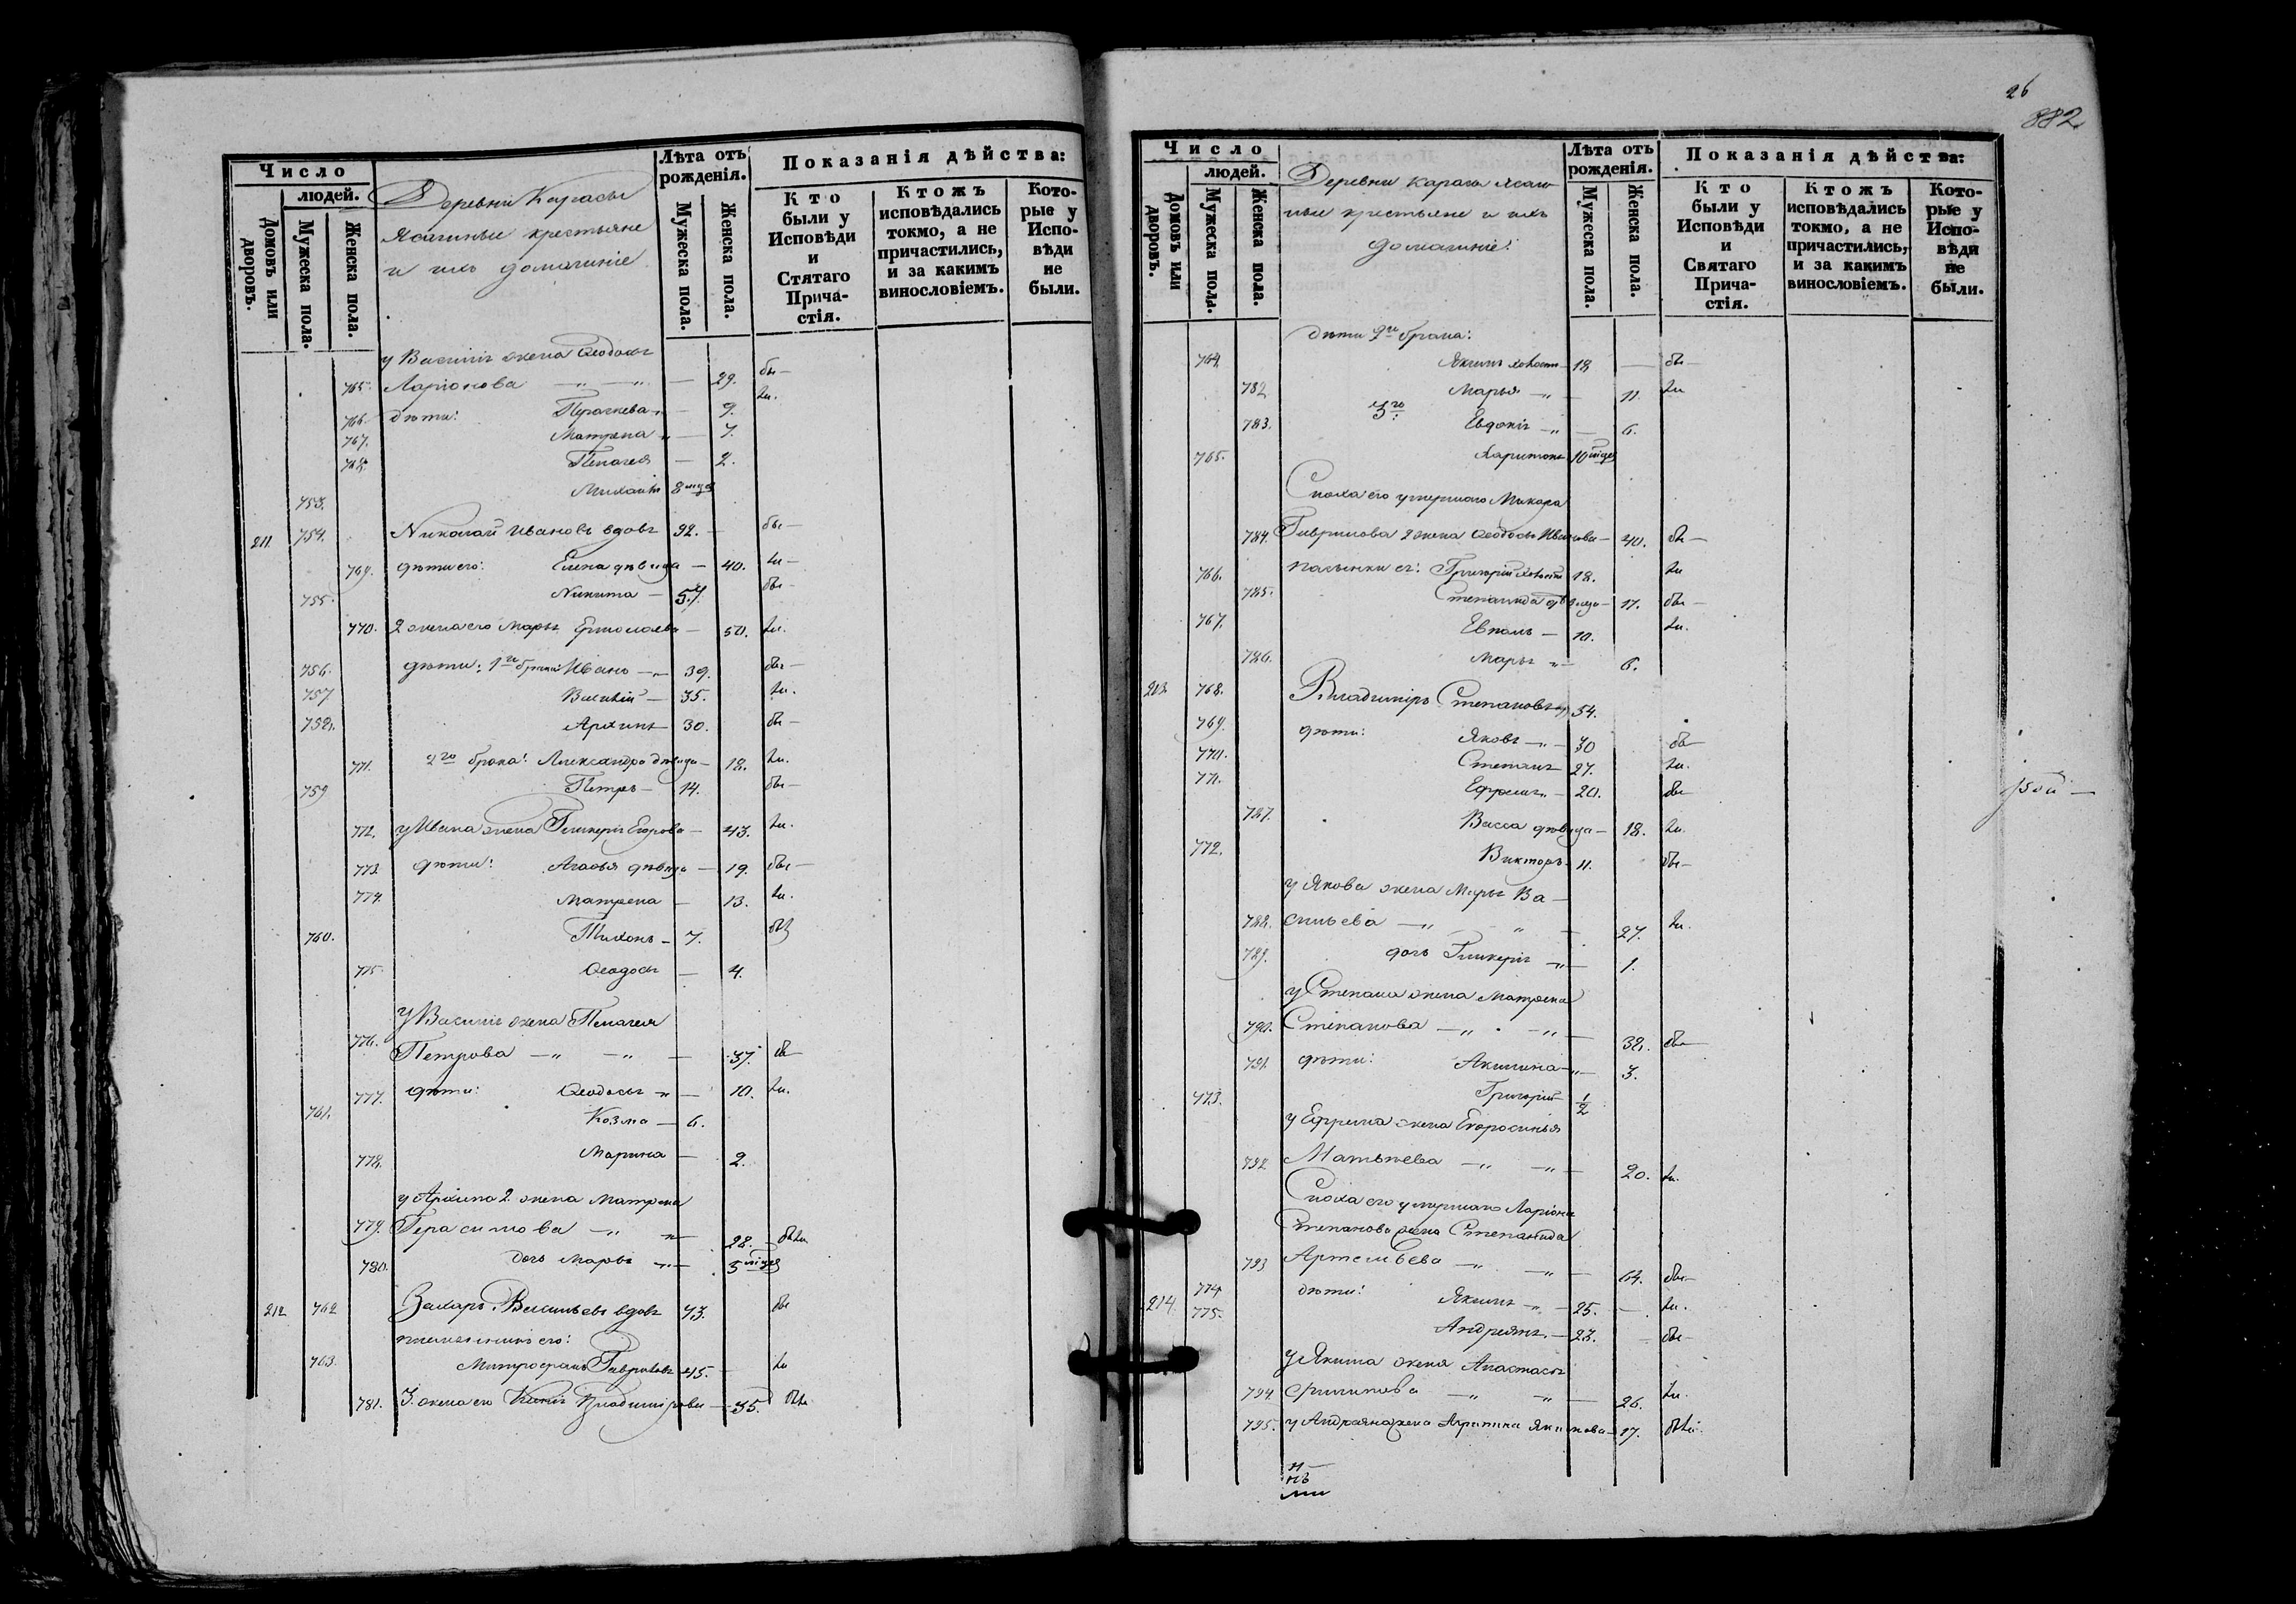 Число
людей.
Домовъ или дворовъ.
Мужеска пола.
Женска пола.
Деревни Карасы
Ясашные крестьяне
и ихъ домашніе
Лѣта отъ рожденія.
Мужеска пола.
Женска пола.
Показанія дѣйства:
Кто были у Исповѣди и Стятаго Прича-стія.
Ктожъ исповѣдались токмо, а не причастились, и за какимъ винословіемъ.
Кото-рые у Испо-вѣди не были.
у Василія жена Ѳеодосья
765. Ларіонова — 29. бы—
766. дѣти: — 9. ли.
767. Матрена — 7.
768. Пелагея — 2.
753. Михаилъ 8 мцъ
211. 754. Николай Ивановъ вдовъ 92. — бы—
769. дѣти его: Елена дѣвица — 40. ли—
755. Никита — 57. бы—
770. 2 жена его Марья Ермолаева — 50. ли.
756. дѣти: 1го брака Иванъ — 39. бы—
757 Василій — 35. ли.
758. Архипъ 30. бы—
771. 2го брака: Александра дѣвица — 18. ли.
759 Петръ — 14. бы—
772. у Ивана жена Гликерія Егорова — 43. ли.
773. дѣти: Агафья дѣвица — 19. бы—
774. Матрена — 13. ли.
760. Тихонъ — 7. бы
775. Ѳеодосья — 4.
у Василія жена Пелагея
776. Петрова — 37. бы—
777. дѣти: Ѳеодосья — 10. ли.
761. Козма — 6.
778. Марина — 2.
у Архипа 2. жена Матрена
779. Герасимова — 28. были
780. дочь Марья — 5 мцъ
212 762 Захаръ Васильевъ вдовъ 73. бы
племянникъ его:
763. Митрофанъ Гавриловъ 45. — ли
781. 3. жена его Ксенія Владимірова — 35. были
26
882
Число
людей.
Домовъ или дворовъ.
Мужеска пола.
Женска пола.
Деревни Карасы ясаш-
ные крестьяне и ихъ
домашніе:
Лѣта отъ рожденія.
Мужеска пола.
Женска пола.
Показанія дѣйства:
Кто были у Исповѣди и Святаго Прича-стія.
Ктожъ исповѣдались токмо, а не причастились, и за какимъ винословіемъ.
Кото-рые у Испо-вѣди не были.
дѣти 2го брака:
764. Якимъ холостъ 18 — бы
782 Марья — 11. ли
783. 3го: Евдокія — 6.
765. Харитонъ 10 мцъ
Сноха его умершаго Макара
784. Гаврилова 2 жена Ѳеодосья Иванова — 40. бы—
766. пасынки ея: Григорій холостъ 18. ли
785. Степанида дѣвица — 17. бы—
767. — 10. ли.
786. Марья — 6.
213. 768. Владиміръ Степановъ 54.
769. дѣти: Яковъ — 30 бы
770. Степанъ 27. ли.
771. Ефремъ — 20. бы
787. Васса дѣвица — 18. ли.
772. Викторъ 11. бы—
у Якова жена Марья Ва-
788. сильева — 27. ли.
789. дочь Гликерія — 1.
у Степана жена Матрена
790. Степанова — 32. бы—
791. дѣти: Акилина — 3.
773. Григорій ½
у Ефрема жена Евфросинья
792 Матвѣева — 20. ли.
Сноха его умершаго Ларіона
Степанова жена Степанида
793 Артемьева — 64. бы—
214. 774 дѣти: Якимъ — 25. — ли.
775. Андреянъ — 23. — бы—
у Якима жена Анастасья
794 Филипова — 26. ли.
795. у Андреяна жена Акулина Якимова — 17. были.